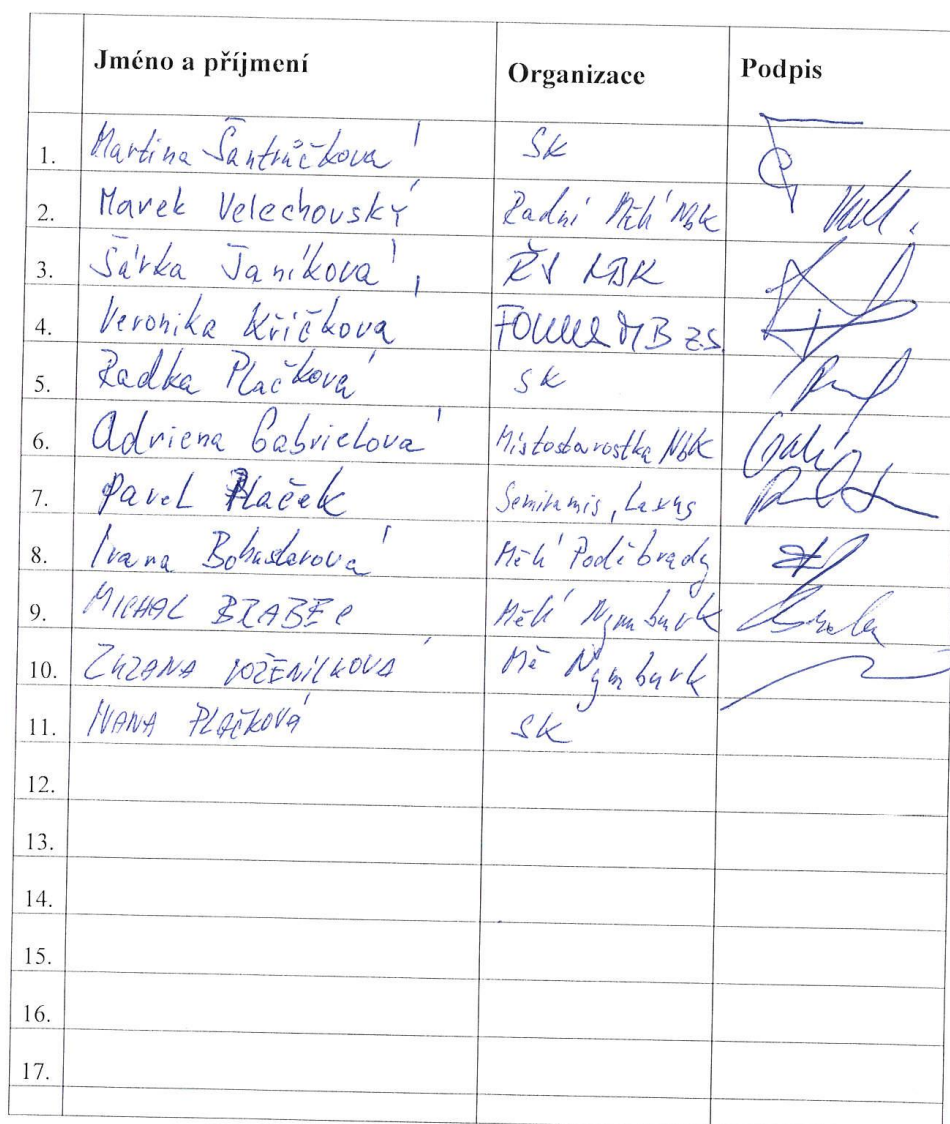 Jméno a příjmení Organizace Podpis
1. Martina Šantrůčková SK
2. Marek Velechovský Radní MěÚ NBK
3. Šárka Janíková ŘV NBK
4. Veronika Křičková MB z.s.
5. Radka Plačková SK
6. Adriena Gabrielová Místostarostka NBK
7. Pavel Plaček Semiramis, Laxus
8. Ivana MěÚ Poděbrady
9. MICHAL BRABEC MěÚ Nymburk
10. ZUZANA VOŽENÍLKOVÁ Mě Nymburk
11. IVANA PLAČKOVÁ SK
12.
13.
14.
15.
16.
17.